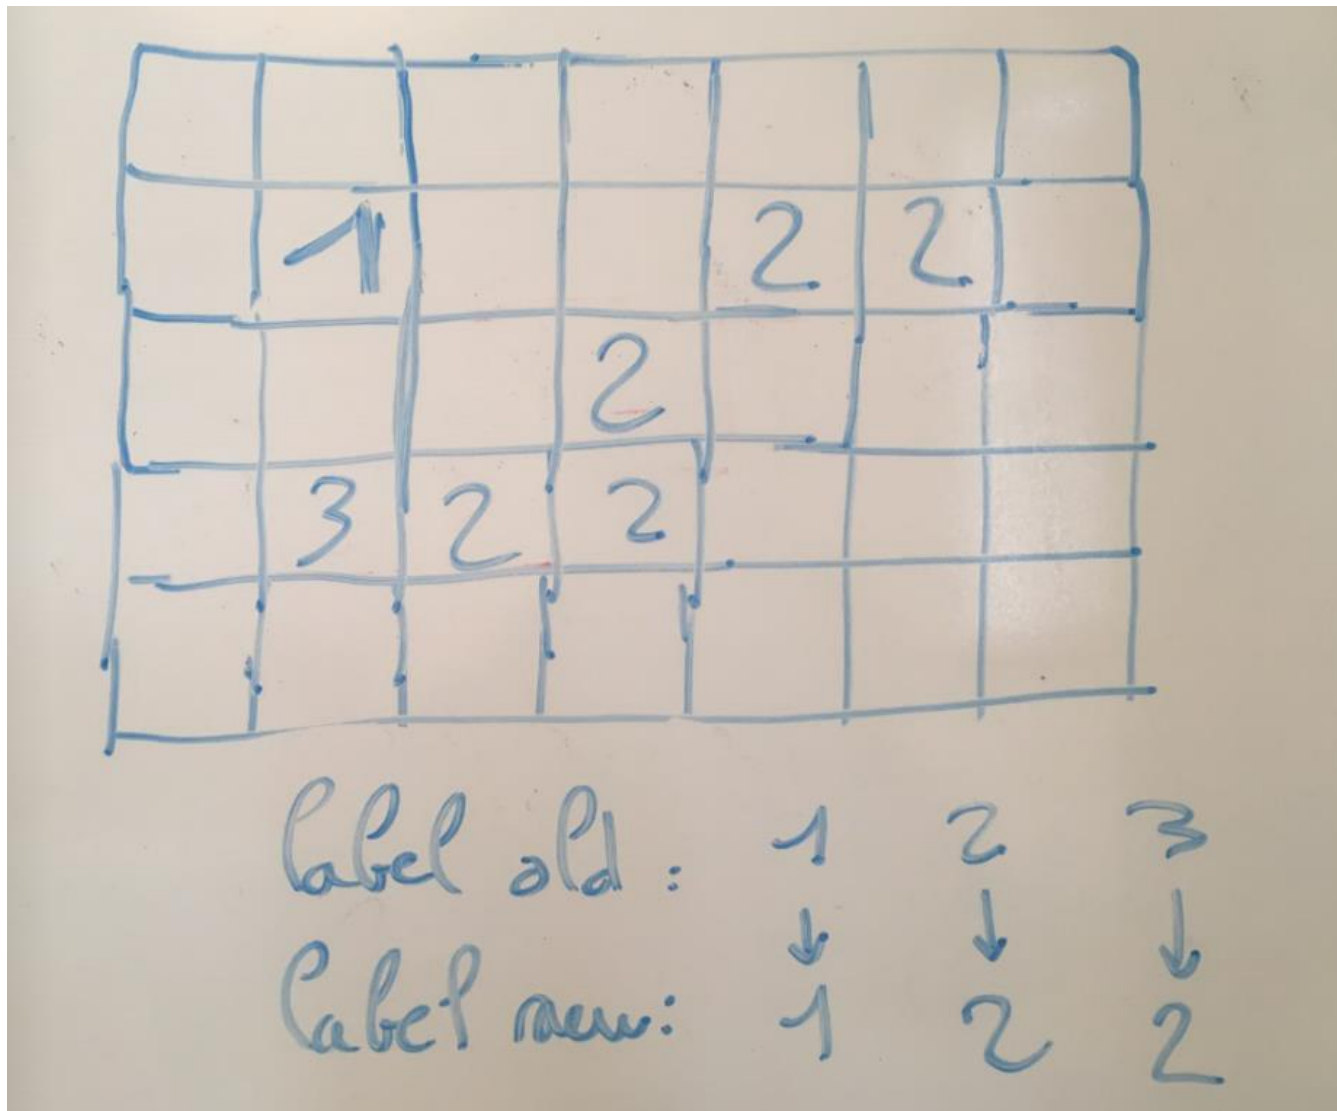 1 2 2
2
3 2 2
label old: 1 2 3
↓ ↓ ↓
label new: 1 2 2